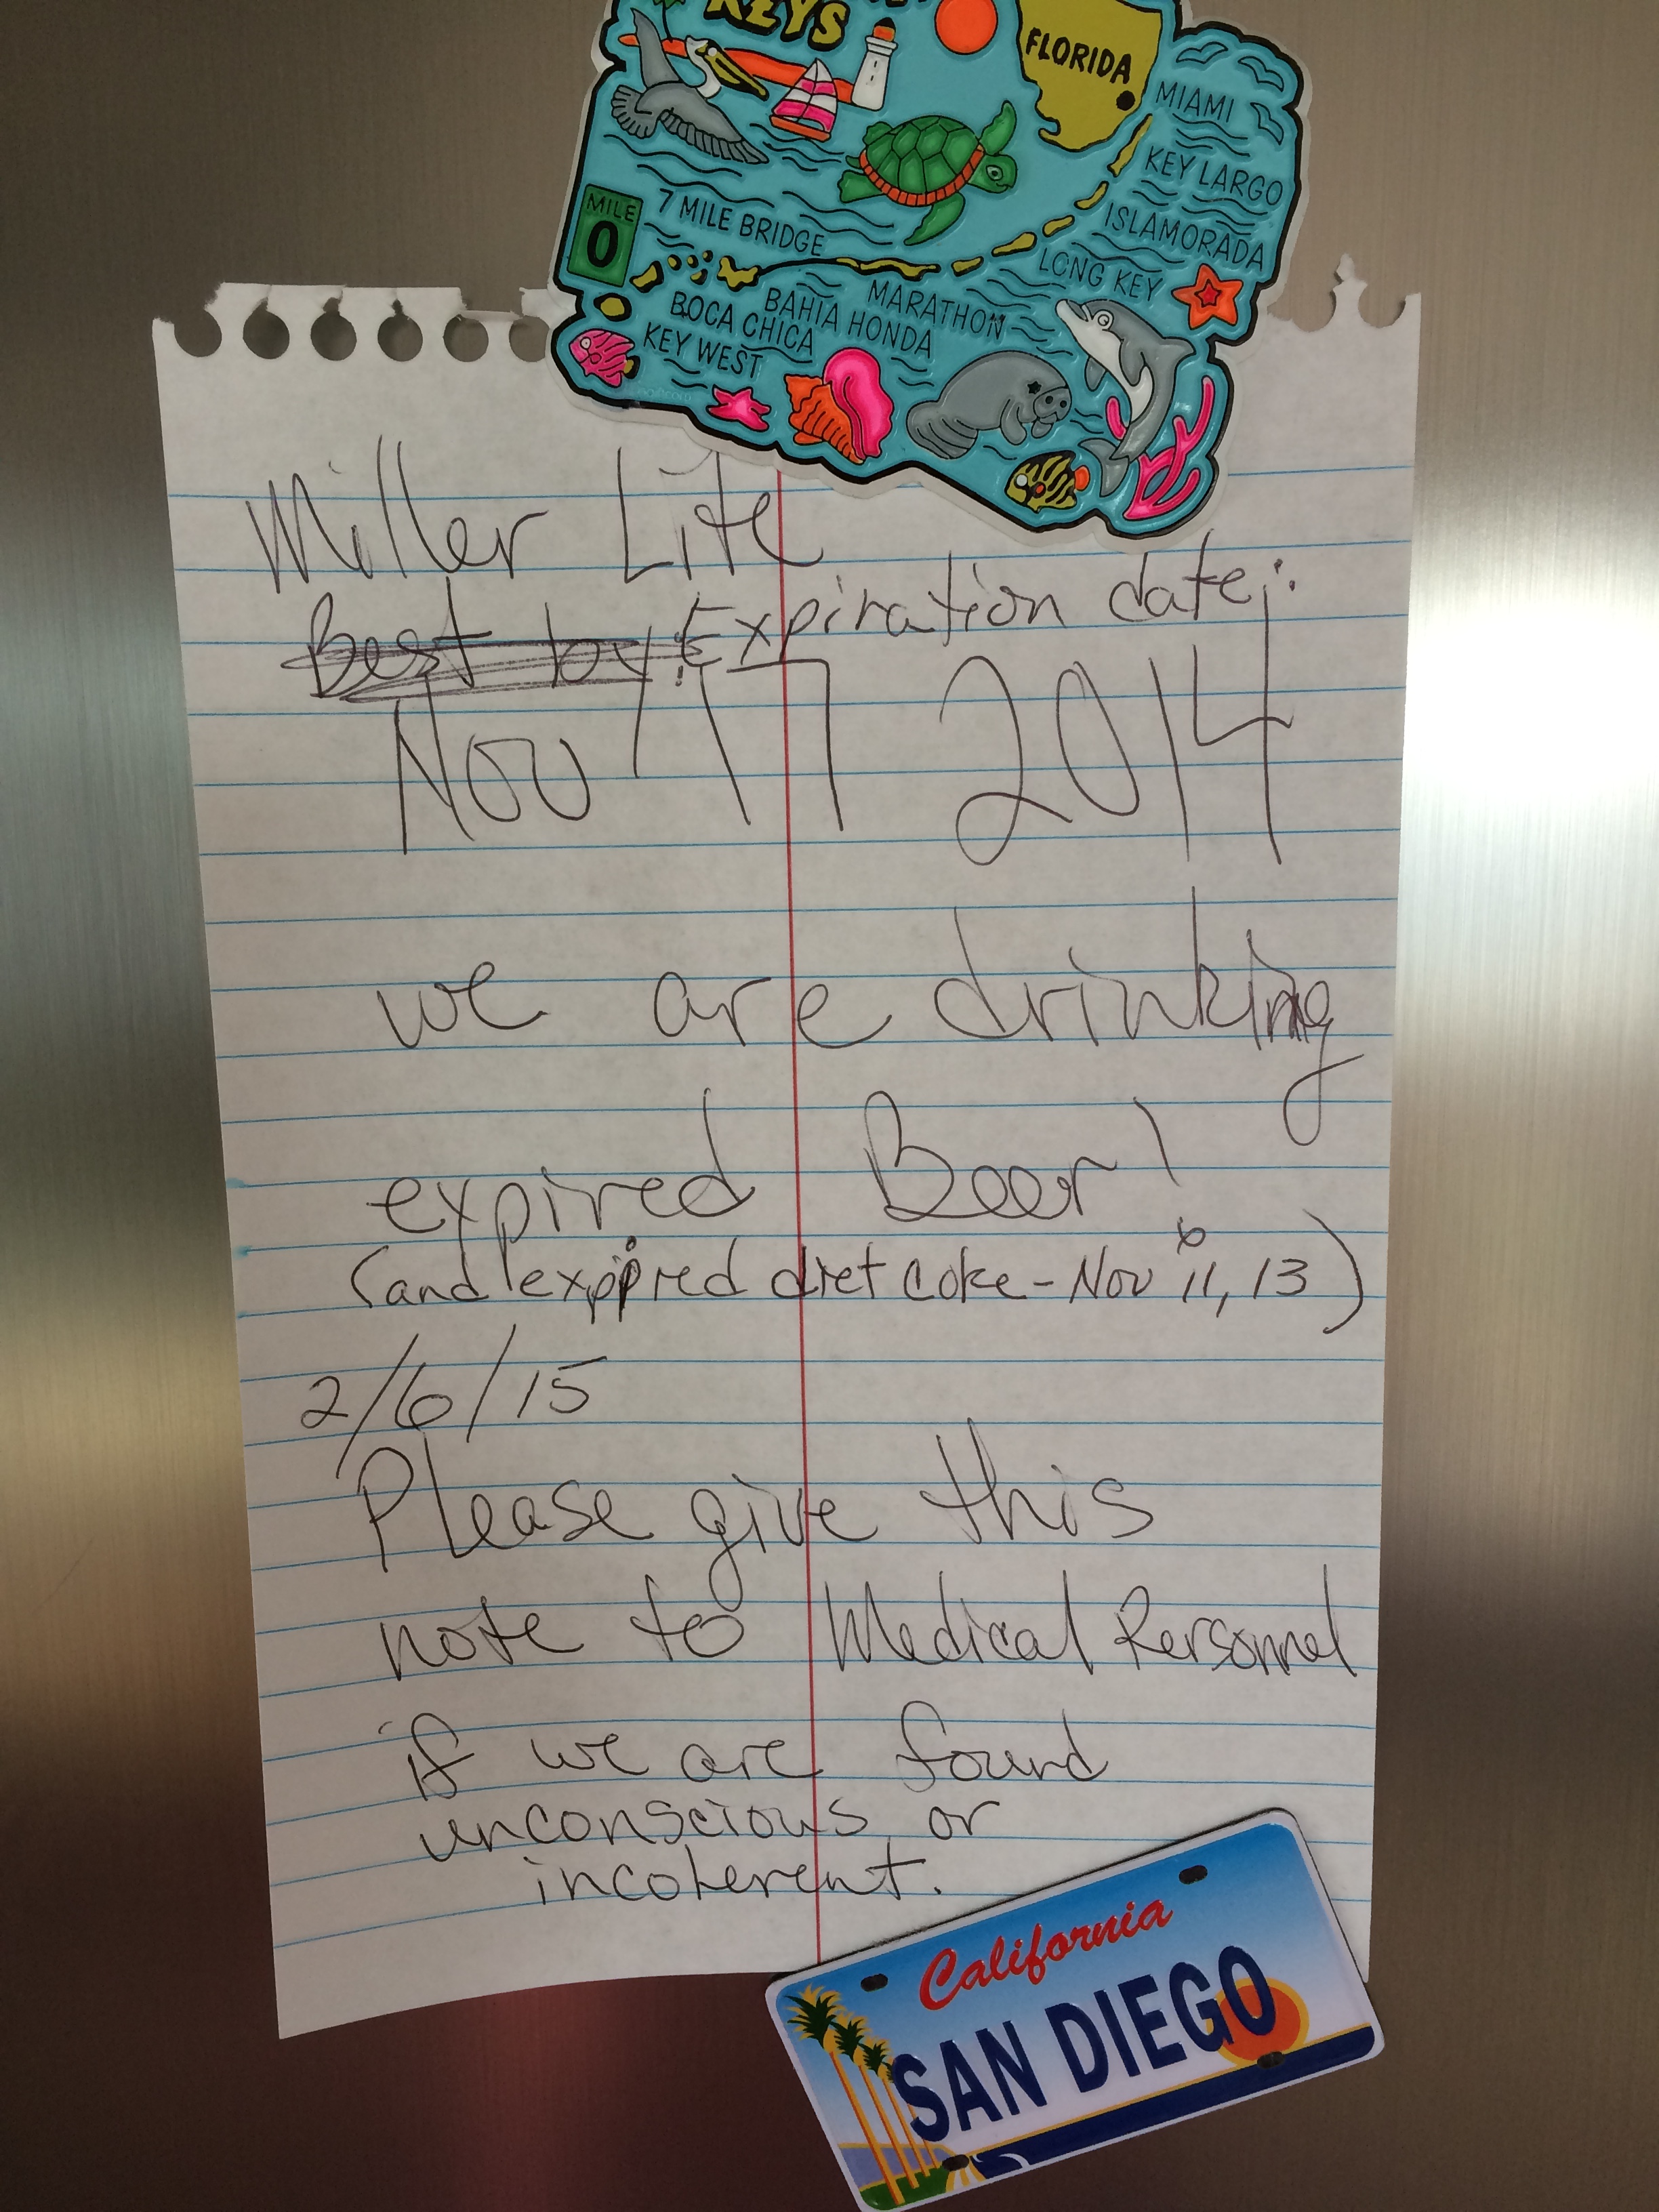 KEYS
FLORIDA
MIAMI
KEY LARGO
ISLAMORADA
LONG KEY
MILE
0
7 MILE BRIDGE
MARATHON
BAHIA HONDA
BOCA CHICA
KEY WEST
Miller Lite
Best by: Expiration date:
Nov 17 2014
we are drinking
expired Beer!
(and expired diet coke - Nov 11, 13)
2/6/15
Please give this
note to Medical Personnel
if we are found
unconscious or
incoherent.
California
SAN DIEGO